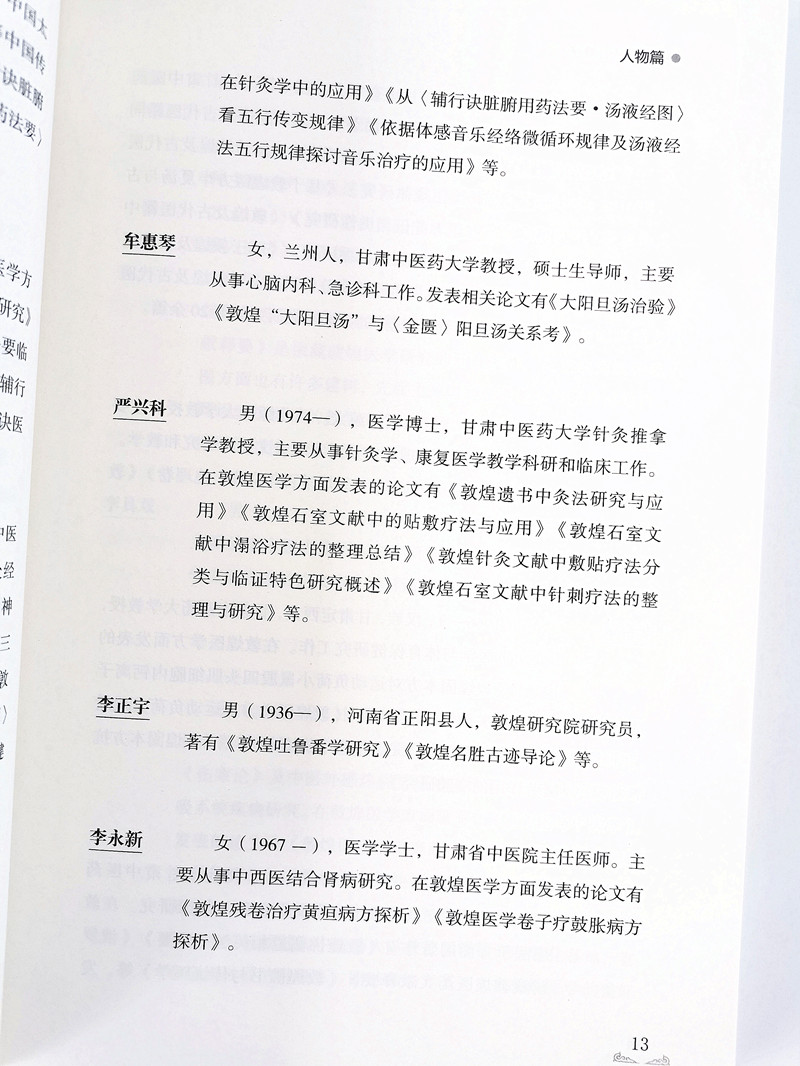 中国太
中国传
诀脏腑
药法要〉
医学方
研究》
要临
辅行
诀医
中医
经
神
三
敦
〉
人物篇
在针灸学中的应用》《从〈辅行诀脏腑用药法要·汤液经图〉
看五行传变规律》《依据体感音乐经络微循环规律及汤液经
法五行规律探讨音乐治疗的应用》等。
牟惠琴 女，兰州人，甘肃中医药大学教授，硕士生导师，主要
从事心脑内科、急诊科工作。发表相关论文有《大阳旦汤治验》
《敦煌“大阳旦汤”与〈金匮〉阳旦汤关系考》。
严兴科 男（1974—），医学博士，甘肃中医药大学针灸推拿
学教授，主要从事针灸学、康复医学教学科研和临床工作。
在敦煌医学方面发表的论文有《敦煌遗书中灸法研究与应
用》《敦煌石室文献中的贴敷疗法与应用》《敦煌石室文
献中溻浴疗法的整理总结》《敦煌针灸文献中敷贴疗法分
类与临证特色研究概述》《敦煌石室文献中针刺疗法的整
理与研究》等。
李正宇 男（1936—），河南省正阳县人，敦煌研究院研究员，
著有《敦煌吐鲁番学研究》《敦煌名胜古迹导论》等。
李永新 女（1967 —），医学学士，甘肃省中医院主任医师。主
要从事中西医结合肾病研究。在敦煌医学方面发表的论文有
《敦煌残卷治疗黄疸病方探析》《敦煌医学卷子疗鼓胀病方
探析》。
13